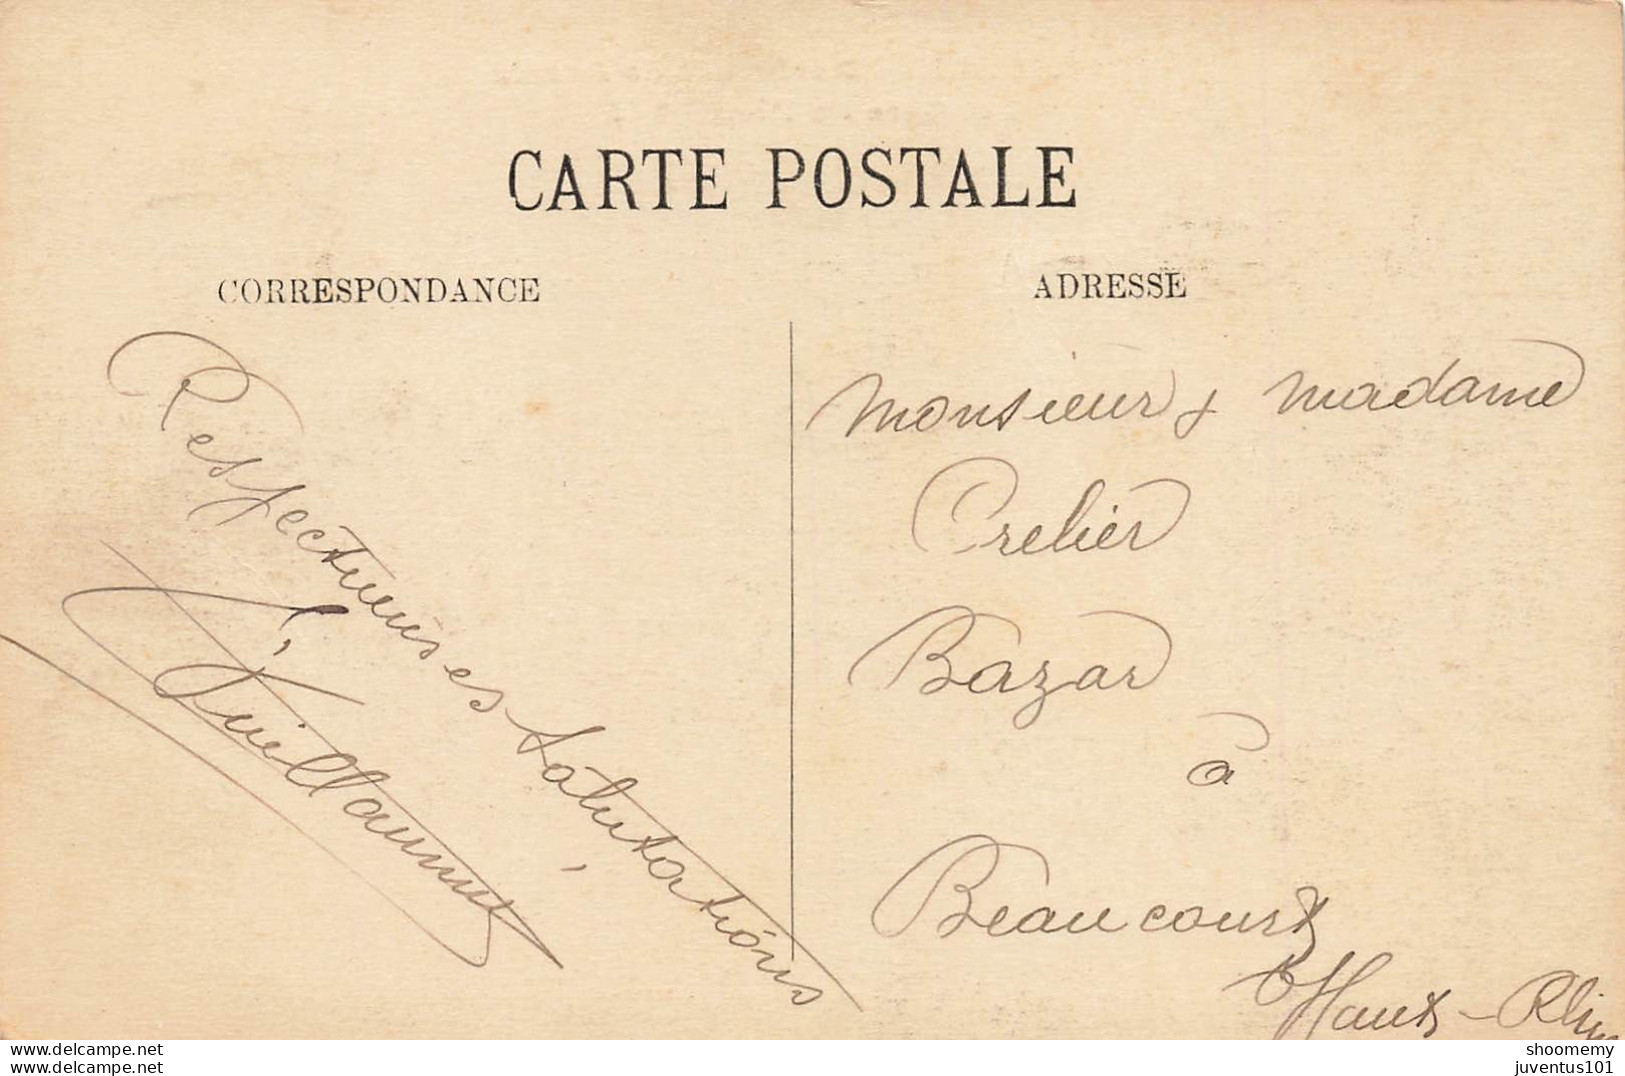 CARTE POSTALE
CORRESPONDANCE
Respectueuses salutations
ADRESSE
Monsieur & Madame
Crelier
Bazar
à
Beaucourt
Haut-Rhin
www.delcampe.net
shoomemy
juventus101